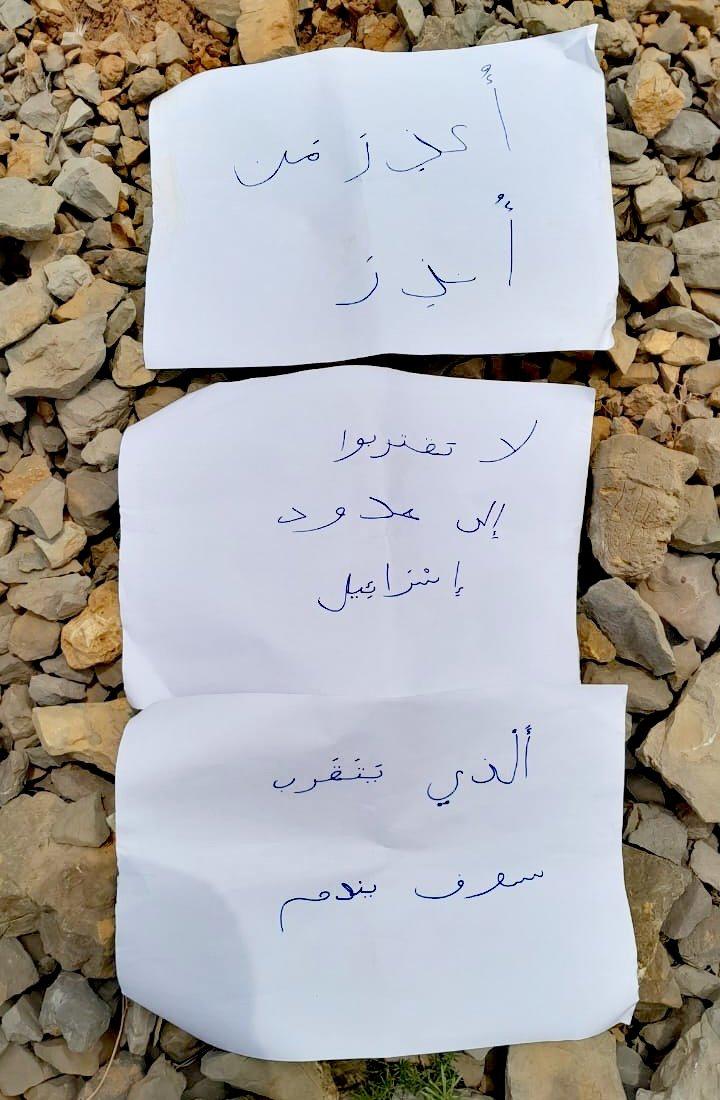 أُعذِرَ مَن
أُنذِرَ
لا تقتربوا
إلى حدود
إسْرَائِيل
أَلْذي يَتَقَرب
سوف يندم